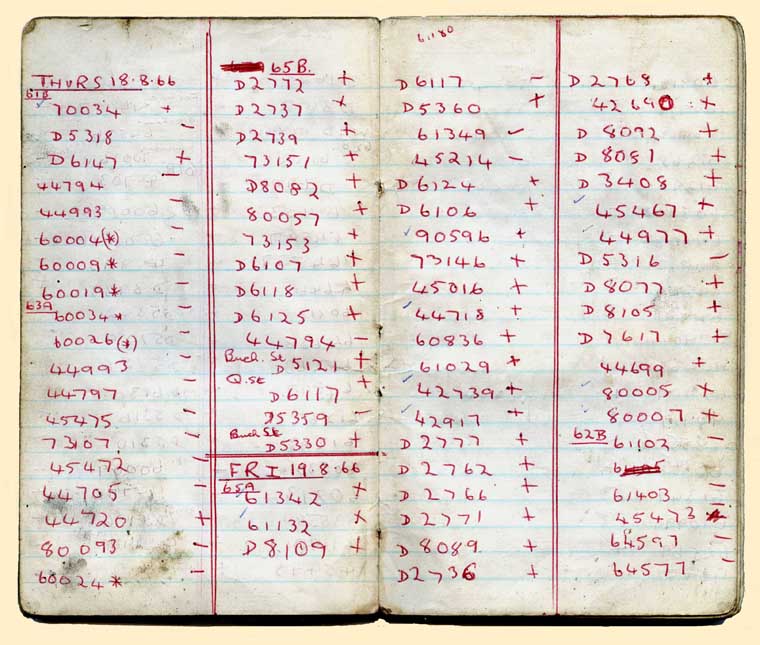 THURS 18.8.66
61B
✓ 70034 +
D5318 -
D6147 +
44794 -
44993 -
60004(*) -
60009* -
60019* -
63A
60034* -
60026(*) -
44993 -
44797 -
45475 -
73107 -
45472 -
44705 -
44720 +
80093 -
60024* -
65B.
D2772 +
D2737 +
D2739 +
73151 +
D8082 +
80057 +
73153 +
D6107 +
D6118 +
D6125 +
44794 -
Buch. St
D5121 +
Q. St
D6117 +
D5359 -
Buch St
D5330 +
FRI 19.8.66
65A
61342 +
✓ 61132 +
D8109 +
61180
D6117 -
D5360 +
61349 ✓
45214 -
D6124 +
D6106 +
✓ 90596 +
73146 +
45016 +
✓ 44718 +
60836 +
61029 +
✓ 42739 +
✓ 42917 +
D2777 +
D2762 +
D2766 +
D2771 +
D8089 +
D2736 +
D2768 +
42690 : +
D 8092 +
D 8051 +
D 3408 +
✓ 45467 +
✓ 44977 +
D5316 -
D8077 +
D8105 +
D7617 +
44699 +
✓ 80005 +
✓ 80007 +
62B
61102 -
61403 -
45473
64597 -
64577 -